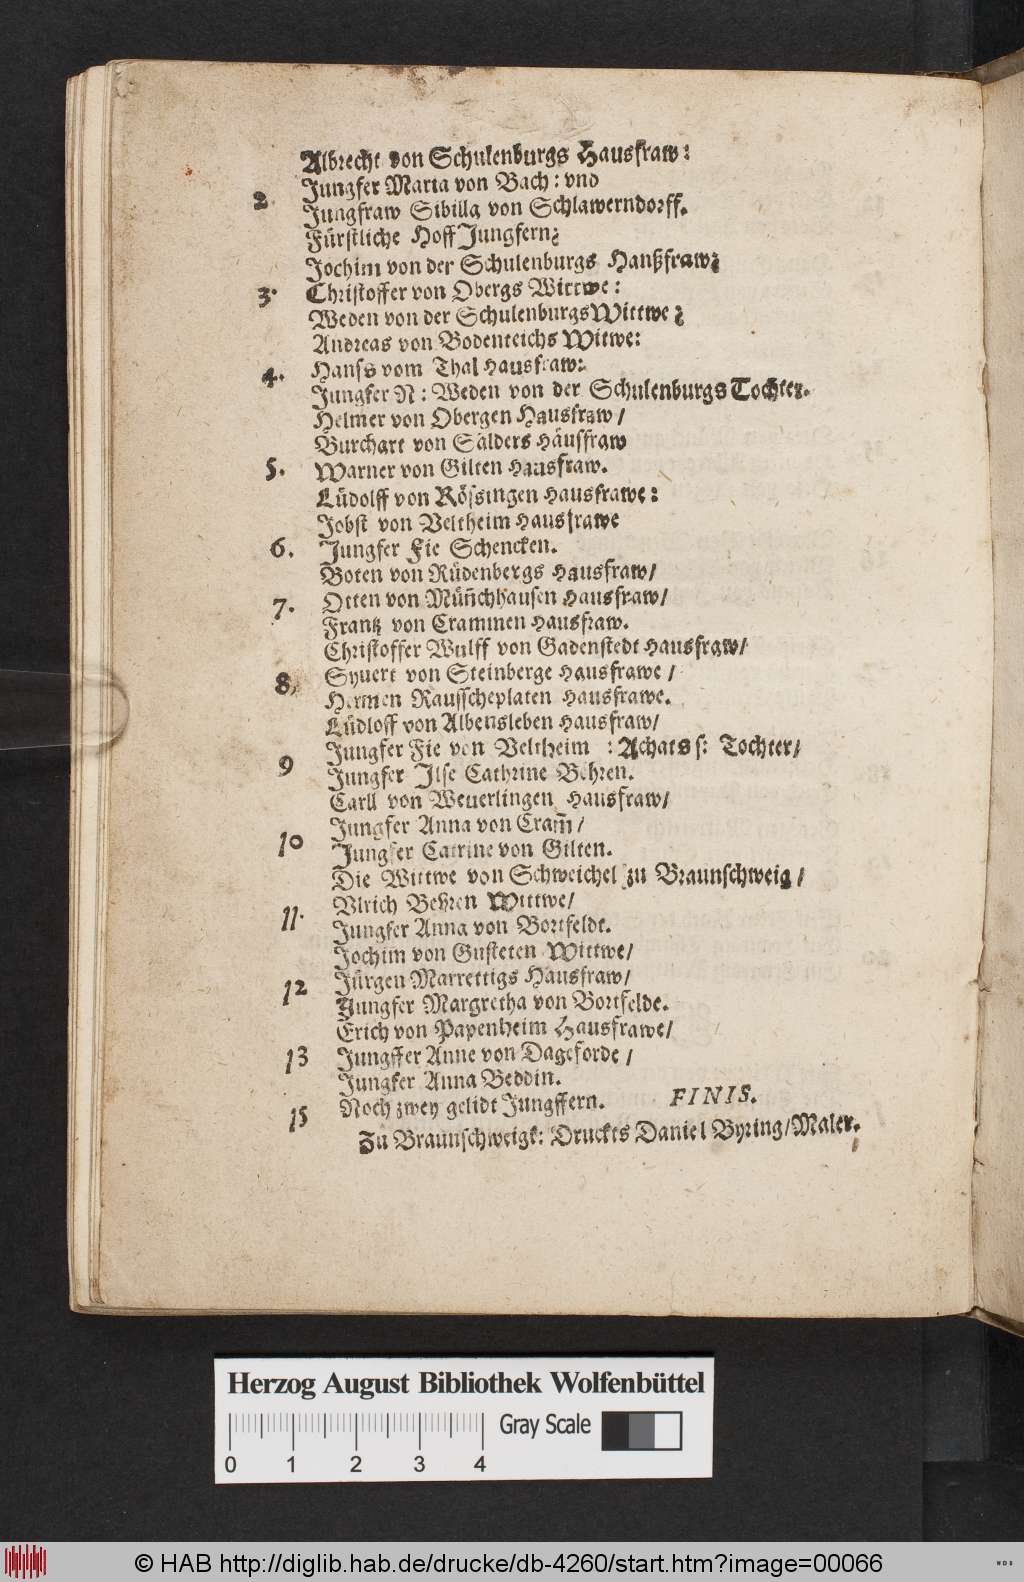 Albrecht von Schulenburgs Hausfraw:
Jungfer Maria von Bach: vnd
2. Jungfraw Sibilla von Schlawerndorff.
Fürstliche Hoff Jungfern:
Jochim von der Schulenburgs Hanßfraw:
3. Christoffer von Obergs Wittwe:
Weden von der Schulenburgs Wittwe:
Andreas von Bodenteichs Witwe:
4. Hanss vom Thal Hausfraw:
Jungfer N: Weden von der Schulenburgs Tochter.
Helmer von Obergen Hausfraw/
Burchart von Sälders Häusfraw
5. Warner von Gilten Hausfraw.
Lüdolff von Rössingen Hausfrawe:
Jobst von Veltheim Hausfrawe
6. Jungfer Fie Schencken.
Boten von Rüdenbergs Hausfraw/
7. Otten von Müñchhausen Hausfraw/
Frantz von Crammen Hausfraw.
Christoffer Wulff von Gadenstedt Hausfraw/
8, Syuert von Steinberge Hausfrawe /
Hermen Rausscheplaten Hausfrawe.
Lüdloff von Albensleben Hausfraw/
Jungfer Fie von Veltheim : Achats s: Tochter/
9 Jungfer Ilse Cathrine Behren.
Carll von Weuerlingen Hausfraw/
Jungfer Anna von Cram̃/
10 Jungfer Catrine von Gilten.
Die Wittwe von Schweichel zu Braunschweig/
Vlrich Behren Wittwe/
11. Jungfer Anna von Bortfeldt.
Jochim von Gusteten Wittwe/
Jürgen Marrettigs Hausfraw/
12 Jungfer Margretha von Bortfelde.
Erich von Papenheim Hausfrawe/
13 Jungffer Anne von Dageforde/
Jungfer Anna Beddin.
15 Noch zwey gelidt Jungffern. FINIS.
Zu Braunschweigk: Druckts Daniel Byring/Maler.
Herzog August Bibliothek Wolfenbüttel
Gray Scale
0 1 2 3 4
© HAB http://diglib.hab.de/drucke/db-4260/start.htm?image=00066
WDB